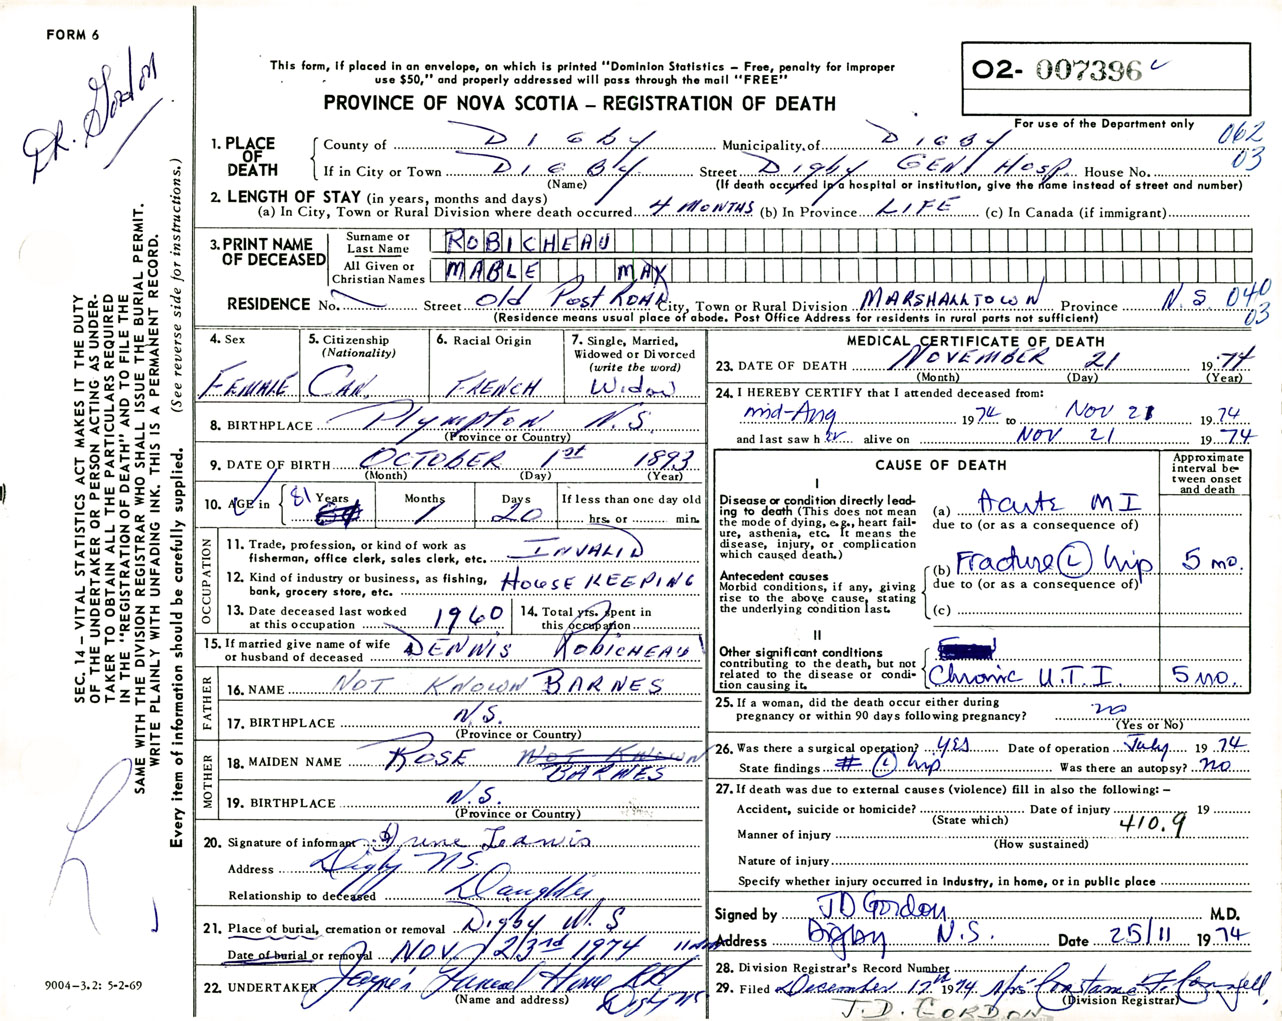 FORM 6
Dr. Gordon
This form, if placed in an envelope, on which is printed "Dominion Statistics – Free, penalty for improper
use $50," and properly addressed will pass through the mail "FREE"
PROVINCE OF NOVA SCOTIA – REGISTRATION OF DEATH
O2- 007396
For use of the Department only
062
03
1. PLACE OF DEATH
County of DIGBY Municipality of DIGBY
If in City or Town DIGBY Street Digby GEN. Hosp. House No.
(Name) (If death occurred in a hospital or institution, give the name instead of street and number)
2. LENGTH OF STAY (in years, months and days)
(a) In City, Town or Rural Division where death occurred 4 MONTHS (b) In Province LIFE (c) In Canada (if immigrant)
3. PRINT NAME OF DECEASED
Surname or Last Name ROBICHEAU
All Given or Christian Names MABLE MAX
RESIDENCE No. Street Old Post ROAD City, Town or Rural Division MARSHALLTOWN Province N.S. 040
03
(Residence means usual place of abode. Post Office Address for residents in rural parts not sufficient)
4. Sex
FEMALE
5. Citizenship
(Nationality)
CAN.
6. Racial Origin
FRENCH
7. Single, Married,
Widowed or Divorced
(write the word)
Widow
8. BIRTHPLACE Plympton N.S.
(Province or Country)
9. DATE OF BIRTH OCTOBER 1st 1893
(Month) (Day) (Year)
10. AGE in 81 Years Months 1 Days 20 If less than one day old
hrs. or min.
OCCUPATION
11. Trade, profession, or kind of work as
fisherman, office clerk, sales clerk, etc. INVALID
12. Kind of industry or business, as fishing,
bank, grocery store, etc. HOUSEKEEPING
13. Date deceased last worked
at this occupation 1960
14. Total yrs. spent in
this occupation
15. If married give name of wife
or husband of deceased DENNIS ROBICHEAU
FATHER
16. NAME NOT KNOWN BARNES
17. BIRTHPLACE N.S.
(Province or Country)
MOTHER
18. MAIDEN NAME ROSE NOT KNOWN
BARNES
19. BIRTHPLACE N.S.
(Province or Country)
20. Signature of informant Irene
Address Digby N.S.
Relationship to deceased Daughter
21. Place of burial, cremation or removal Digby N.S
Date of burial or removal NOV. 23rd 1974
22. UNDERTAKER Jayne's Funeral Home
Digby NS
(Name and address)
MEDICAL CERTIFICATE OF DEATH
23. DATE OF DEATH NOVEMBER 21 1974
(Month) (Day) (Year)
24. I HEREBY CERTIFY that I attended deceased from:
mid-Aug 1974 to Nov 21 1974
and last saw h er alive on Nov 21 1974
CAUSE OF DEATH
Approximate
interval be-
tween onset
and death
I
Disease or condition directly lead-
ing to death (This does not mean
the mode of dying, e.g., heart fail-
ure, asthenia, etc. It means the
disease, injury, or complication
which caused death.)
(a) Acute MI
due to (or as a consequence of)
Antecedent causes
Morbid conditions, if any, giving
rise to the above cause, stating
the underlying condition last.
(b) Fracture (L) hip 5 mo.
due to (or as a consequence of)
(c)
II
Other significant conditions
contributing to the death, but not
related to the disease or condi-
tion causing it.
Chronic U.T.I. 5 mo.
25. If a woman, did the death occur either during
pregnancy or within 90 days following pregnancy? no
(Yes or No)
26. Was there a surgical operation? yes Date of operation July 1974
State findings # (L) hip Was there an autopsy? no
27. If death was due to external causes (violence) fill in also the following:–
Accident, suicide or homicide? Date of injury 19
(State which)
410.9
Manner of injury
(How sustained)
Nature of injury
Specify whether injury occurred in industry, in home, or in public place
Signed by JD Gordon M.D.
Address Digby N.S. Date 25/11 1974
28. Division Registrar's Record Number
29. Filed December 12th 1974 Mrs Constance F. Connell
(Division Registrar)
J.D. GORDON
SEC. 14 – VITAL STATISTICS ACT MAKES IT THE DUTY
OF THE UNDERTAKER OR PERSON ACTING AS UNDER-
TAKER TO OBTAIN ALL THE PARTICULARS REQUIRED
IN THE "REGISTRATION OF DEATH" AND TO FILE THE
SAME WITH THE DIVISION REGISTRAR WHO SHALL ISSUE THE BURIAL PERMIT.
WRITE PLAINLY WITH UNFADING INK. THIS IS A PERMANENT RECORD.
Every item of information should be carefully supplied. (See reverse side for instructions.)
9004-3.2: 5-2-69